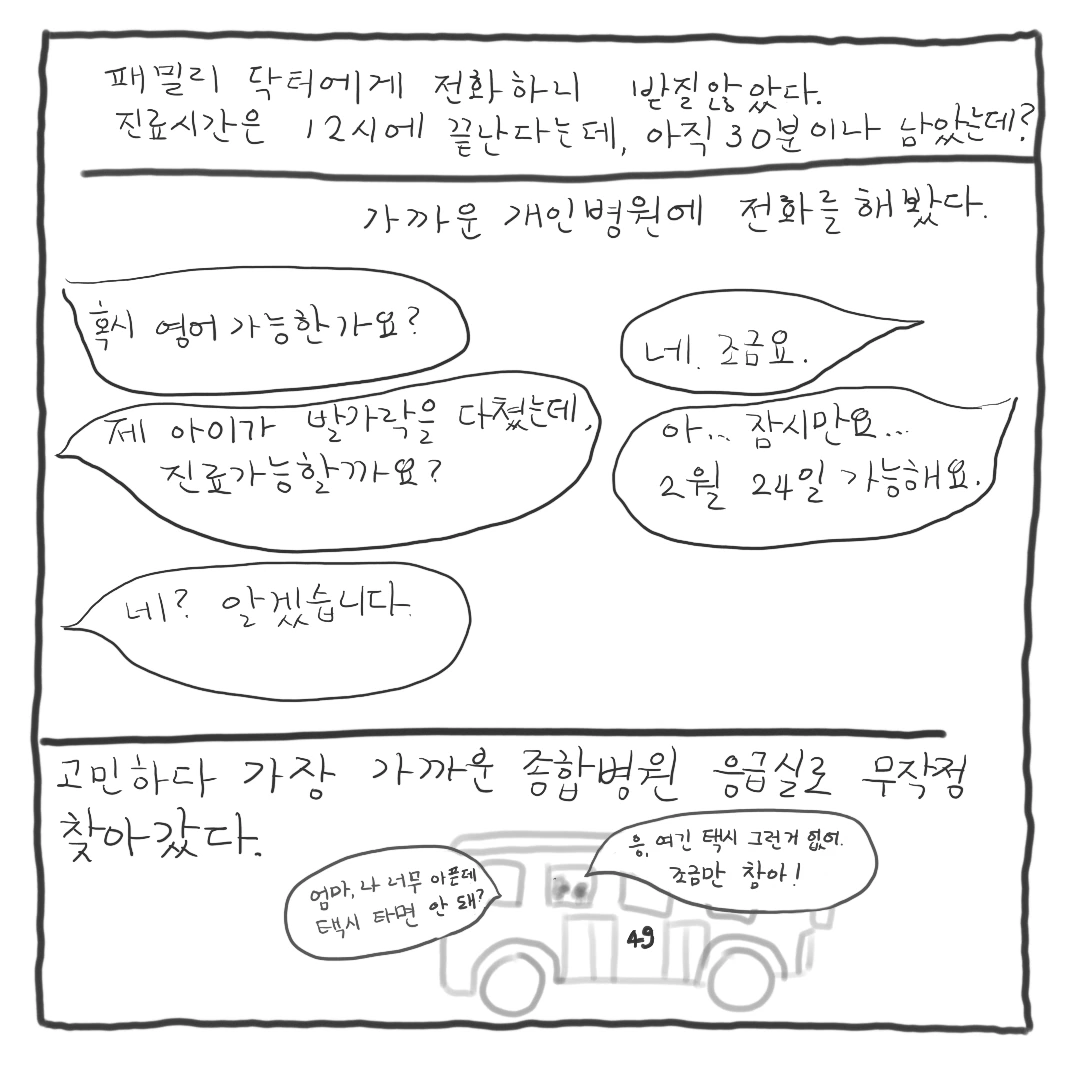 패밀리 닥터에게 전화하니 받질않았다.
진료시간은 12시에 끝난다는데, 아직 30분이나 남았는데?
가까운 개인병원에 전화를 해봤다.
혹시 영어 가능한가요?
네. 조금요.
제 아이가 발가락을 다쳤는데,
진료가능할까요?
아... 잠시만요...
2월 24일 가능해요.
네? 알겠습니다.
고민하다 가장 가까운 종합병원 응급실로 무작정
찾아갔다.
엄마, 나 너무 아픈데
택시 타면 안 돼?
응, 여긴 택시 그런거 없어.
조금만 참아!
49